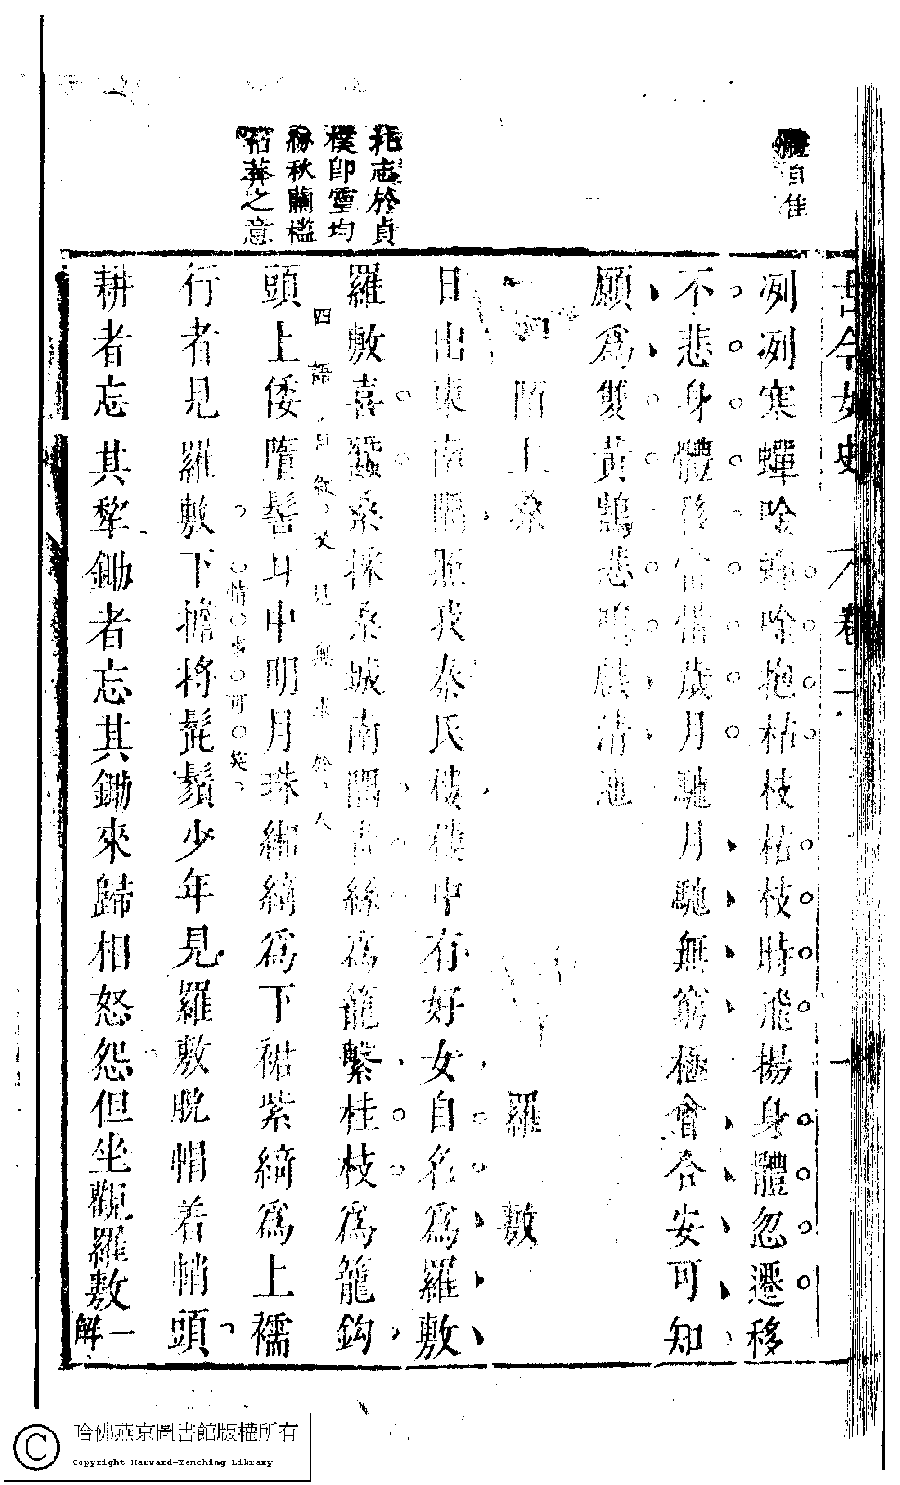 古今女史 卷二 一
自佳
洌洌寒蟬吟蟬吟抱枯枝枯枝時飛揚身體忽遷移
不悲身體移當惜歲月馳月馳無窮極會合安可知
願爲雙黃鵠悲鳴戲清池
陌上桑 羅敷
日出東南隅照我秦氏樓樓中有好女自名爲羅敷
羅敷喜蠶桑採桑城南隅青絲爲籠繫桂枝爲籠鈎
頭上倭墮髻耳中明月珠緗綺爲下裙紫綺爲上襦
行者見羅敷下擔捋髭鬚少年見羅敷脫帽着帩頭
耕者忘其犂鋤者忘其鋤來歸相怒怨但坐觀羅敷一解
托志於貞
樸即靈均
秋蘭
之意
四語
情可笑
哈佛燕京圖書館版權所有
Copyright Harvard-Yenching Library